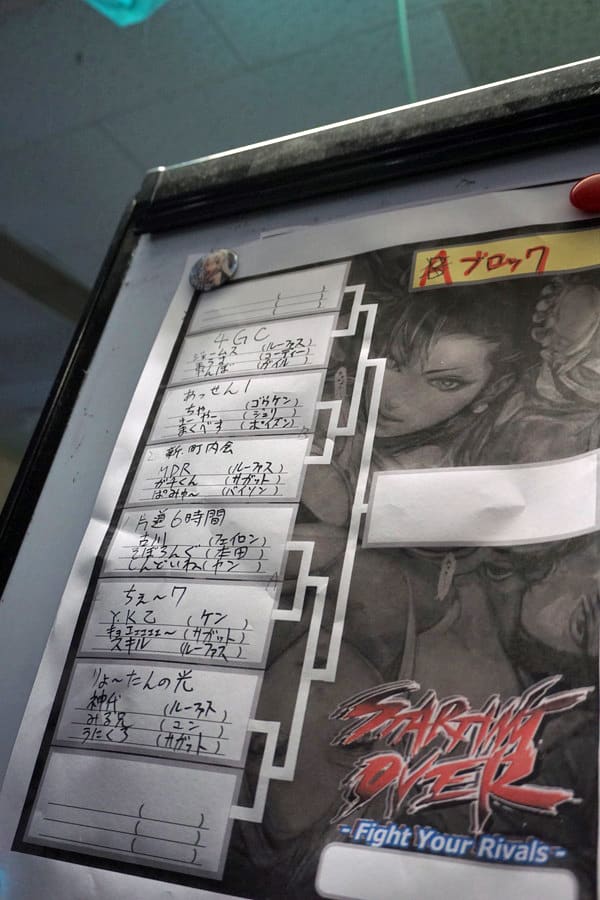 Aブロック
4GC
ジェームス (ルーファス)
(コーディー)
(ガイル)
あっせん!
ちゃわー (ジュリ)
(ゴウケン)
まくべす (ポイズン)
新・町内会
YDR (ルーファス)
ガチくん (サガット)
ぱみゅ〜 (バイソン)
片道6時間
古川 (フェイロン)
そぼろんぐ (本田)
しんどいね (ヤン)
ちぇ〜7
Y.K乙 (ケン)
キョエエエエエ〜 (サガット)
スキル (ルーファス)
りょ〜たんの光
神代 (ルーファス)
みる兄 (ユン)
うにくろ (サガット)
STARTING OVER
- Fight Your Rivals -